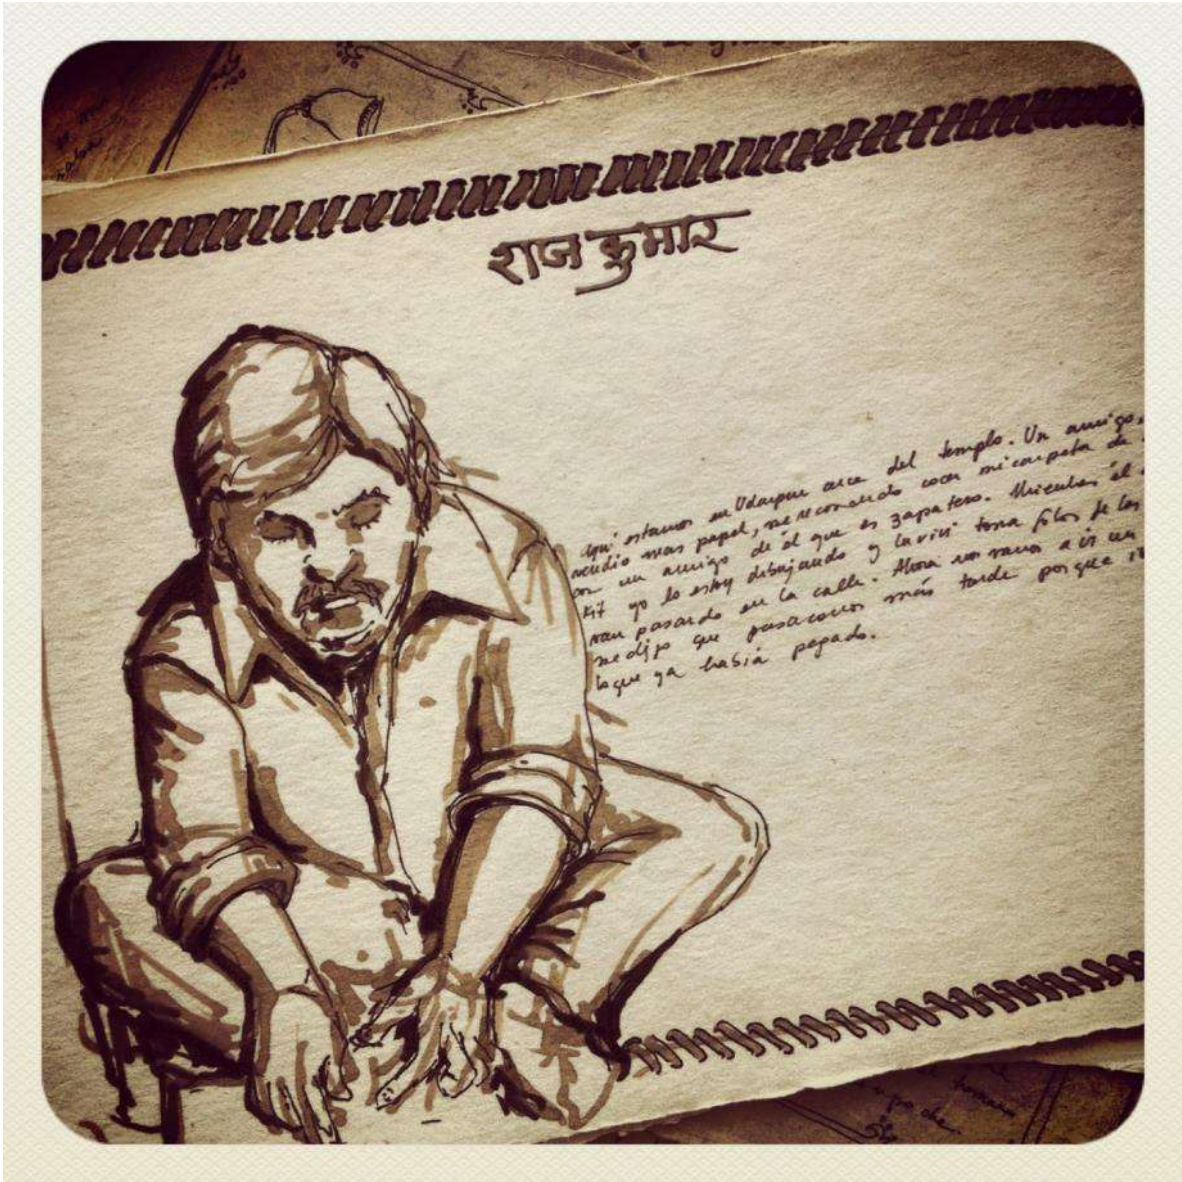 राज कुमार
Aquí estamos en Udaipur cerca del templo. Un amigo,
vendió mas papel, me recomendó coser mi carpeta de
con un amigo de él que es zapatero. Mientras él
yo lo estoy dibujando y la vivi toma fotos de los
van pasando en la calle. Ahora nos vamos a ir un
me dijo que pasáramos más tarde porque
lo que ya había pagado.